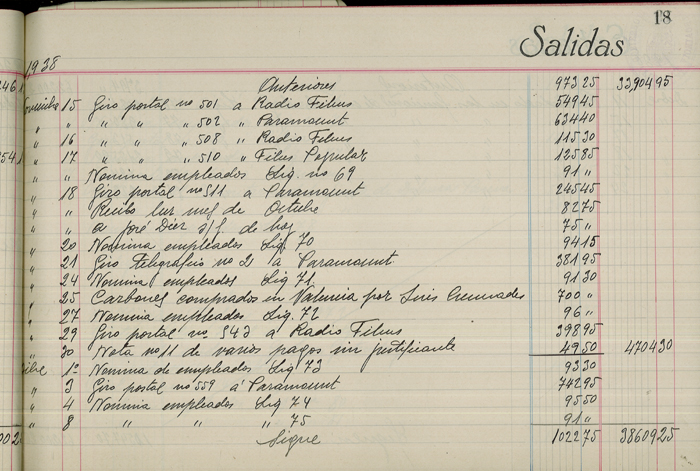 18
Salidas
1938
2461 Anteriores 97325 3390495
viembre 15 Giro postal nº 501 a Radio Films 54945
" " " " " 502 " Paramount 63440
" 16 " " " 508 " Radio Films 11530
2541 " 17 " " " 510 " Films Popular 12585
" " Nomina empleados Liq. nº 69 91 "
" 18 Giro postal nº 511 a Paramount 24545
" " Recibo luz mes de Octubre 8275
" " a José Diez s/f. de hoy 75 "
" 20 Nomina empleados Liq 70 9415
" 21 Giro telegrafico nº 2 a Paramount 38195
" 24 Nomina empleados Liq 71 9130
" 25 Carbones comprados en Valencia por Luis 700 "
" 27 Nomina empleados Liq. 72 96 "
" 29 Giro postal nº 543 a Radio Films 39895
" 30 Nota nº 11 de varios pagos sin justificante 4950 470430
bre 1º Nomina de empleados Liq 73 9330
" 3 Giro postal nº 559 a Paramount 74295
" 4 Nomina empleados Liq 74 9550
" 8 " " " 75 91 "
Sigue 102275 3860925